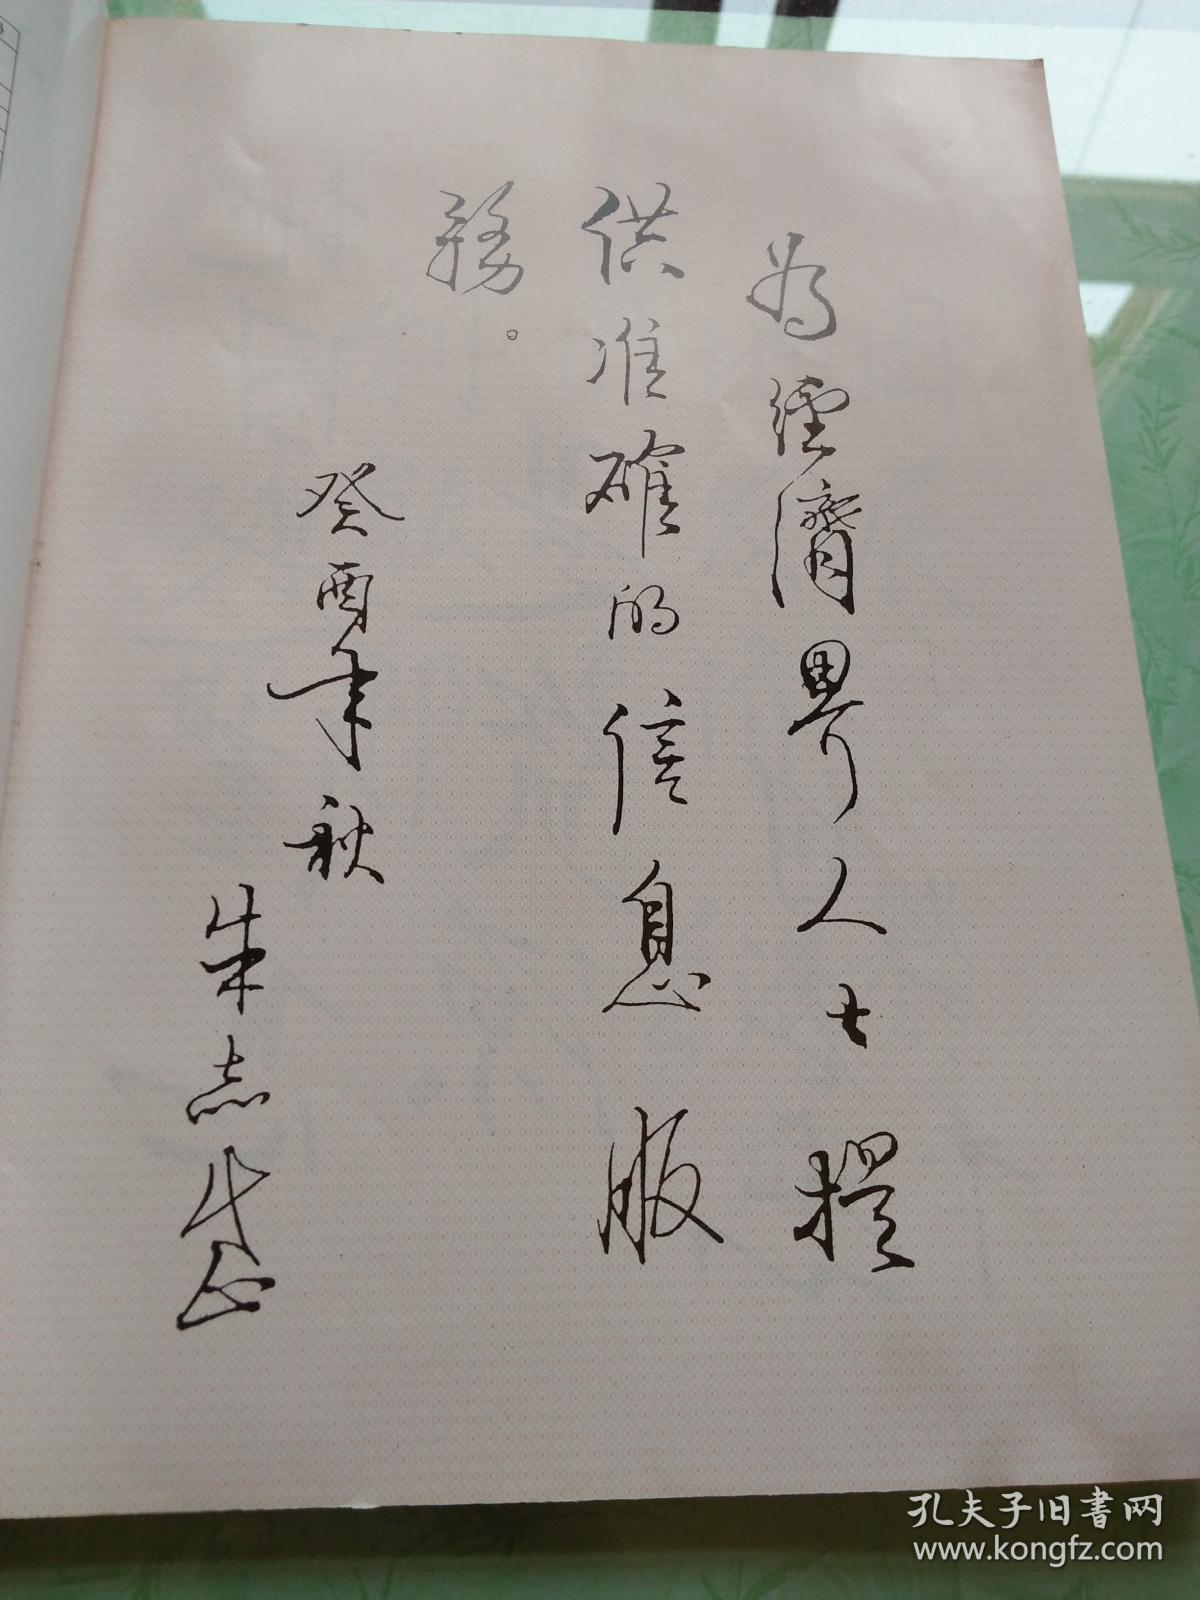 为經濟界人士提
供准確的信息服
務。
癸酉年秋
朱志
孔夫子旧書网
www.kongfz.com